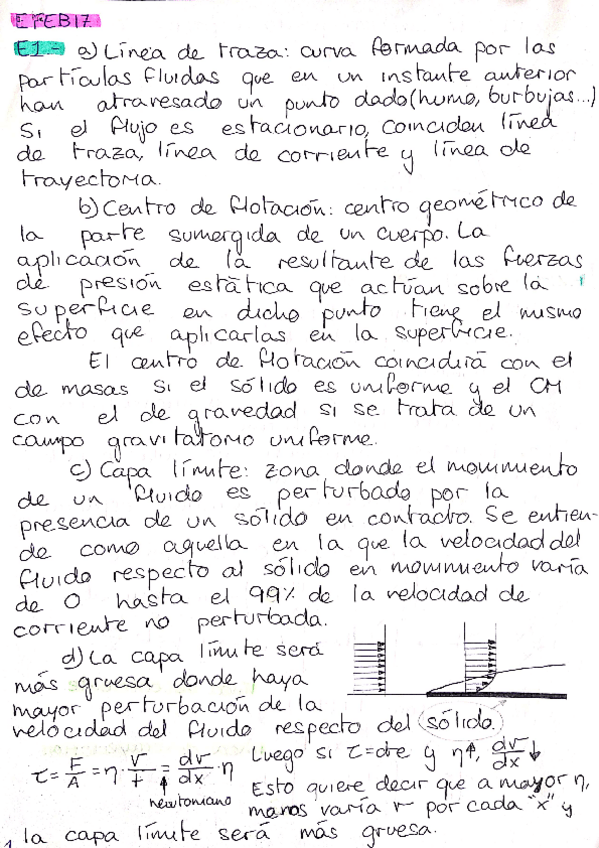 EFEB17
E1.- a) Línea de traza: curva formada por las
partículas fluidas que en un instante anterior
han atravesado un punto dado (humo, burbujas...)
Si el flujo es estacionario, coinciden línea
de traza, línea de corriente y línea de
trayectoria.
b) Centro de flotación: centro geométrico de
la parte sumergida de un cuerpo. La
aplicación de la resultante de las fuerzas
de presión estática que actúan sobre la
superficie en dicho punto tiene el mismo
efecto que aplicarlas en la superficie.
El centro de flotación coincidirá con el
de masas si el sólido es uniforme y el CM
con el de gravedad si se trata de un
campo gravitatorio uniforme.
c) Capa límite: zona donde el movimiento
de un fluido es perturbado por la
presencia de un sólido en contacto. Se entien-
de como aquella en la que la velocidad del
fluido respecto al sólido en movimiento varía
de 0 hasta el 99% de la velocidad de
corriente no perturbada.
d) La capa límite será
más gruesa donde haya
mayor perturbación de la
velocidad del fluido respecto del sólido.
τ = F/A = η · v/t = dv/dx · η Luego si τ = cte y η↑, dv/dx ↓
newtoniano
Esto quiere decir que a mayor η,
menos varía v por cada "x" y
la capa límite será más gruesa.